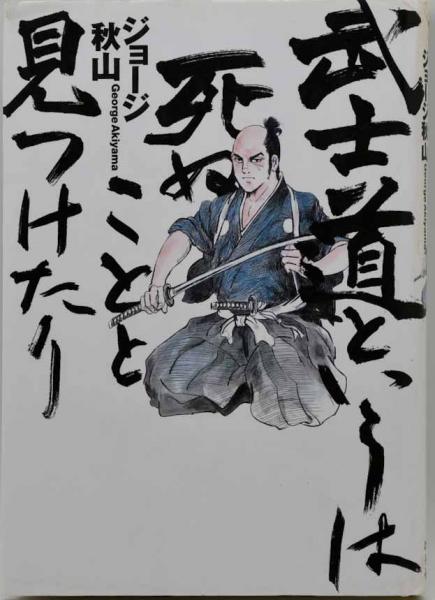 武士道というは
死ぬことと
見つけたり
ジョージ
秋山
George Akiyama
ジョージ秋山